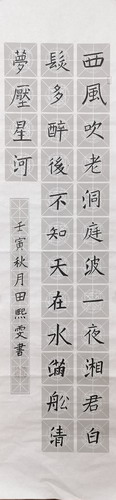 西風吹老洞庭波一夜湘君白
髮多醉後不知天在水滿船清
夢壓星河
壬寅秋月田熙雯書